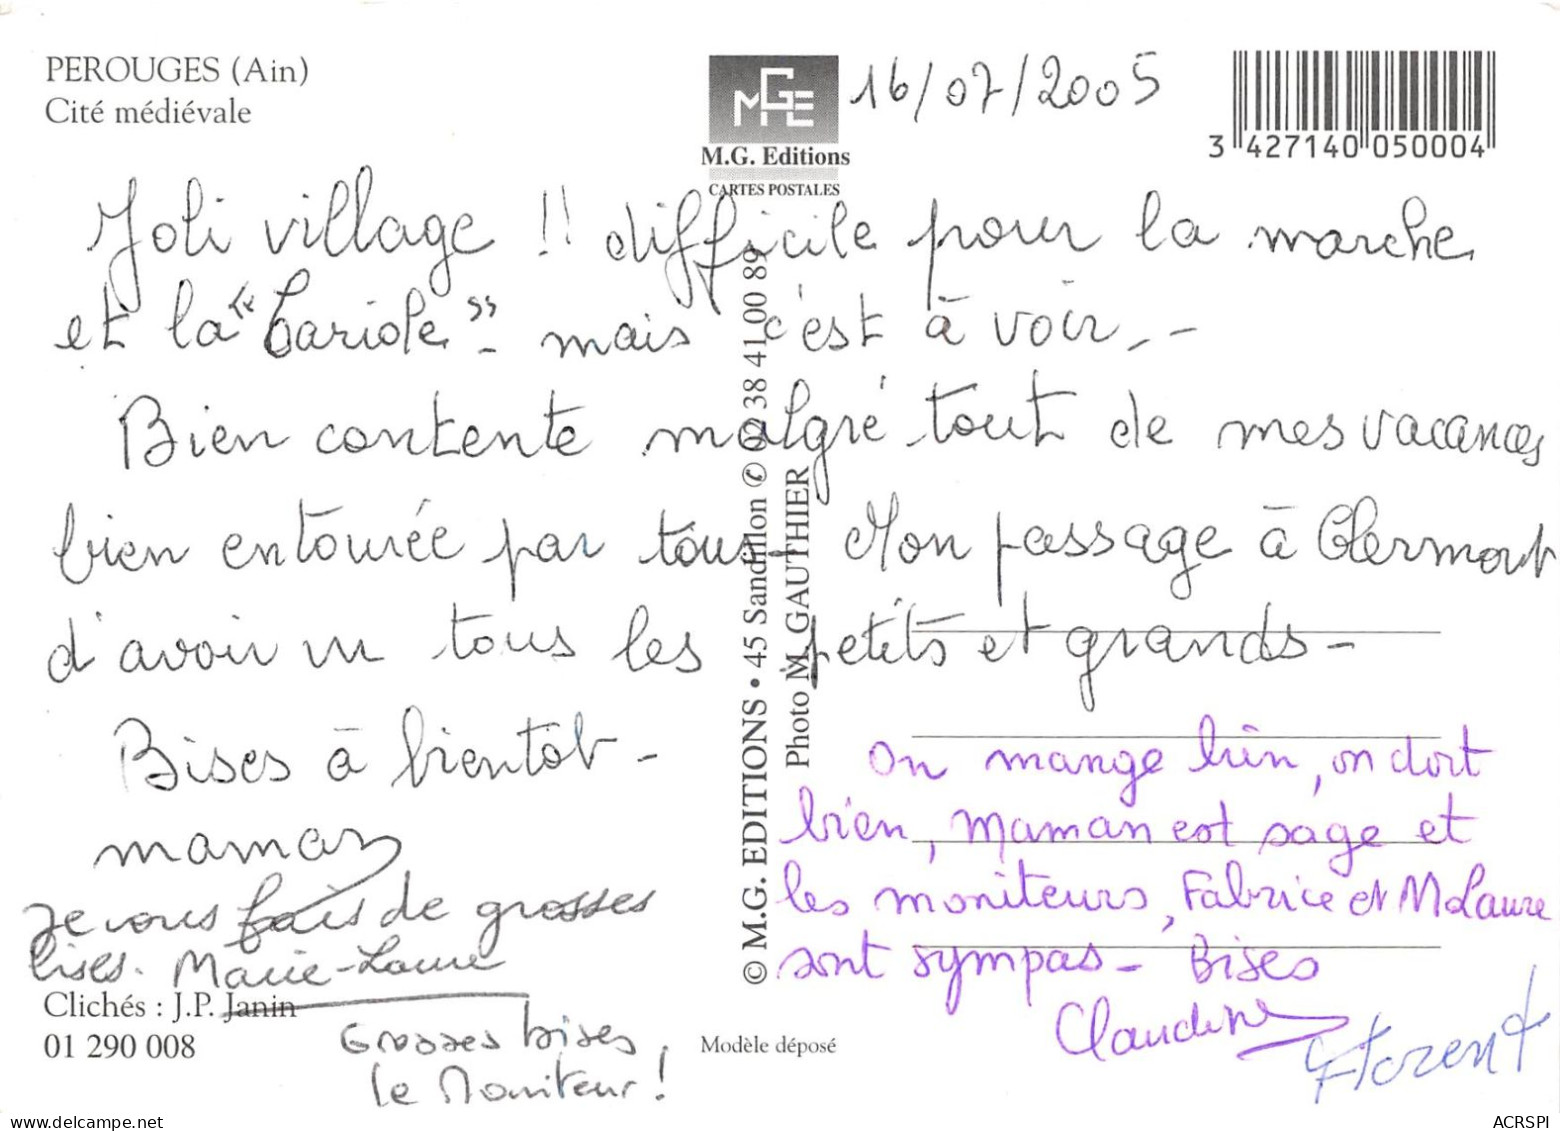 PEROUGES (Ain)
Cité médiévale
MGE
M.G. Editions
CARTES POSTALES
16/07/2005
3 427140 050004
Joli village !! difficile pour la marche
et la "Cariole" - mais c'est à voir. -
Bien contente malgré tout de mes vacances
bien entourée par tous - Mon passage à Clermont
d'avoir vu tous les petits et grands -
Bises à bientôt -
maman
Je vous fais de grosses
bises. Marie-Laure
Grosses bises
le Moniteur !
On mange bien, on dort
bien, Maman est sage et
les moniteurs, Fabrice et M Laure
sont sympas - Bises
Claudine
Florent
© M.G. EDITIONS • 45 Sandillon ✆ 02 38 41 00 89
Photo M. GAUTHIER
Clichés : J.P. Janin
01 290 008
Modèle déposé
delcampe.net
ACRSPI